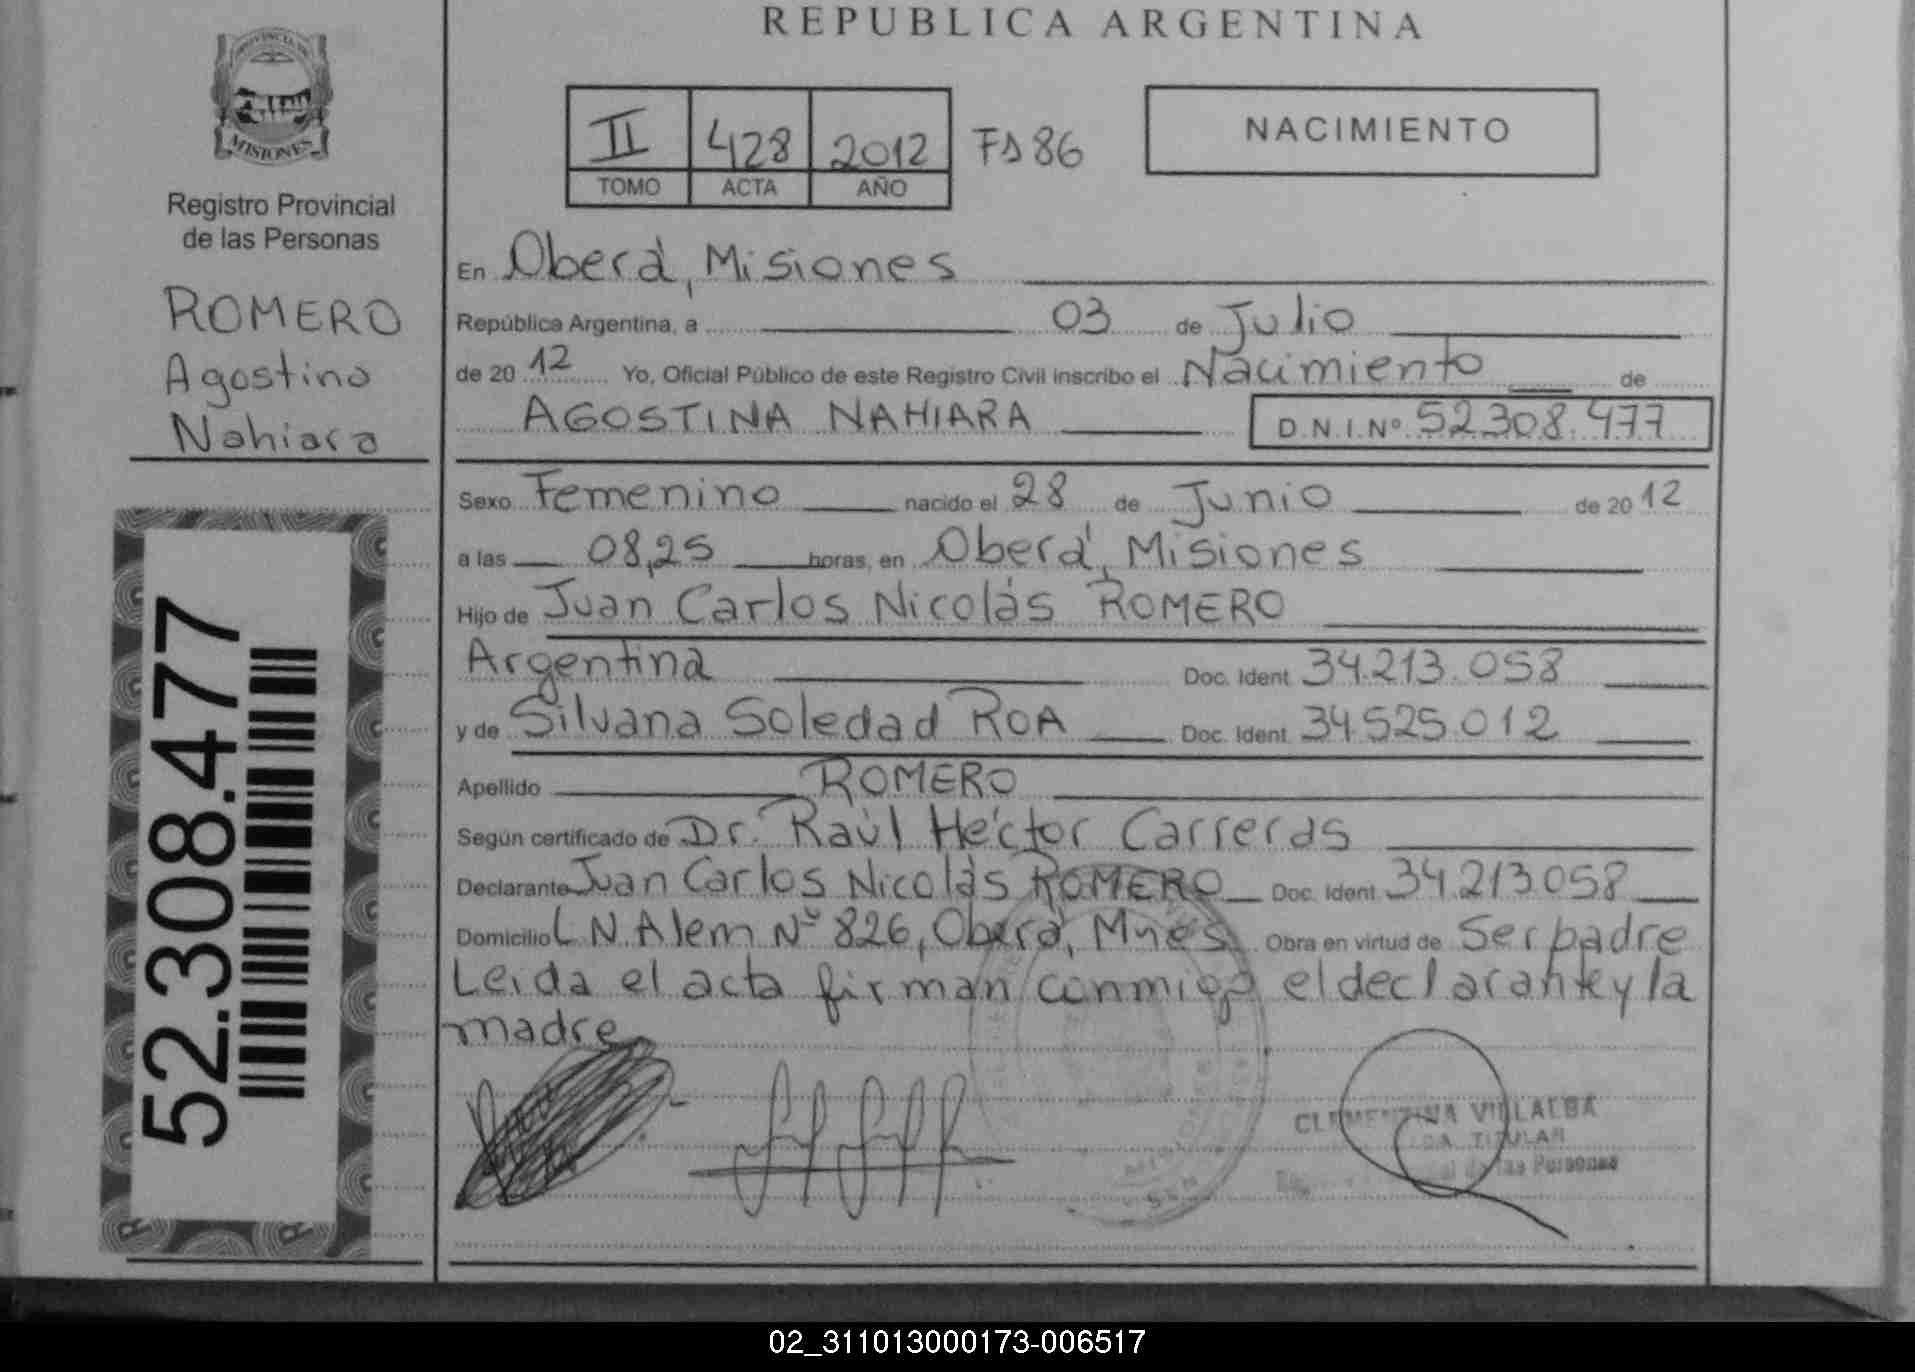 REPUBLICA ARGENTINA
PROVINCIA DE
MISIONES
Registro Provincial
de las Personas
ROMERO
Agostina
Nahiara
52.308.477
II 428 2012 Fs 86
TOMO ACTA AÑO
NACIMIENTO
En Oberá, Misiones
República Argentina, a 03 de Julio
de 20 12 Yo, Oficial Público de este Registro Civil inscribo el Nacimiento de
AGOSTINA NAHIARA D.N.I.Nº 52.308.477
Sexo Femenino nacido el 28 de Junio de 20 12
a las 08,25 horas, en Oberá, Misiones
Hijo de Juan Carlos Nicolás ROMERO
Argentina Doc. Ident. 34.213.058
y de Silvana Soledad ROA Doc. Ident. 34.525.012
Apellido ROMERO
Según certificado de Dr. Raúl Héctor Carreras
Declarante Juan Carlos Nicolás ROMERO Doc. Ident. 34.213.058
Domicilio L N. Alem Nº 826, Oberá, Mnes Obra en virtud de Ser padre
Leida el acta firman conmigo el declarante y la
madre
CLEMENTINA VILLALBA
TITULAR
de las Personas
02_311013000173-006517